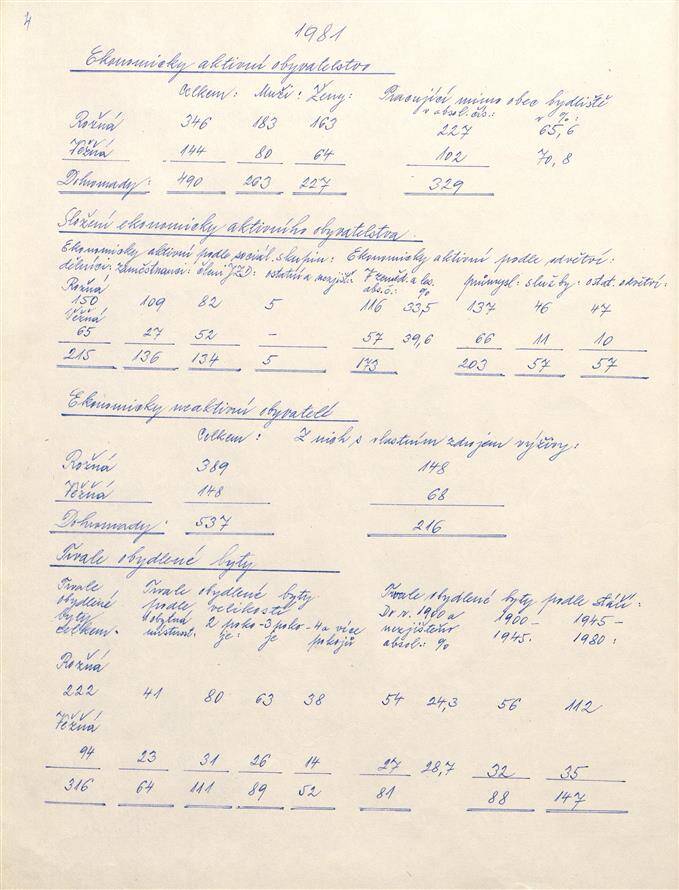 4
1981
Ekonomicky aktivní obyvatelstvo
Celkem: Muži: Ženy: Pracující mimo obec bydliště
v absol. čís.: v %:
Rožná 346 183 163 227 65,6
Věžná 144 80 64 102 70,8
Dohromady: 490 263 227 329
Složení ekonomicky aktivního obyvatelstva.
Ekonomicky aktivní podle sociál. skupin: Ekonomicky aktivní podle odvětví:
dělníci: zaměstnanci: členi JZD: ostatní a nezjišť.: V zeměd. a les. průmysl: služby: ost. odvětví:
abs. č.: %
Rožná
150 109 82 5 116 33,5 137 46 47
Věžná
65 27 52 – 57 39,6 66 11 10
215 136 134 5 173 203 57 57
Ekonomicky neaktivní obyvatelé
Celkem: Z nich s vlastním zdrojem výživy:
Rožná 389 148
Věžná 148 68
Dohromady: 537 216
Trvale obydlené byty
Trvale Trvale obydlené byty Trvale obydlené byty podle stáří:
obydlené podle velikosti Do r. 1900 a 1900– 1945–
byty 1 obytná 2 poko- 3 poko- 4 a více nezjištěno 1945. 1980:
celkem. místnost: je: je pokojů absol.: %
Rožná
222 41 80 63 38 54 24,3 56 112
Věžná
94 23 31 26 14 27 28,7 32 35
316 64 111 89 52 81 88 147